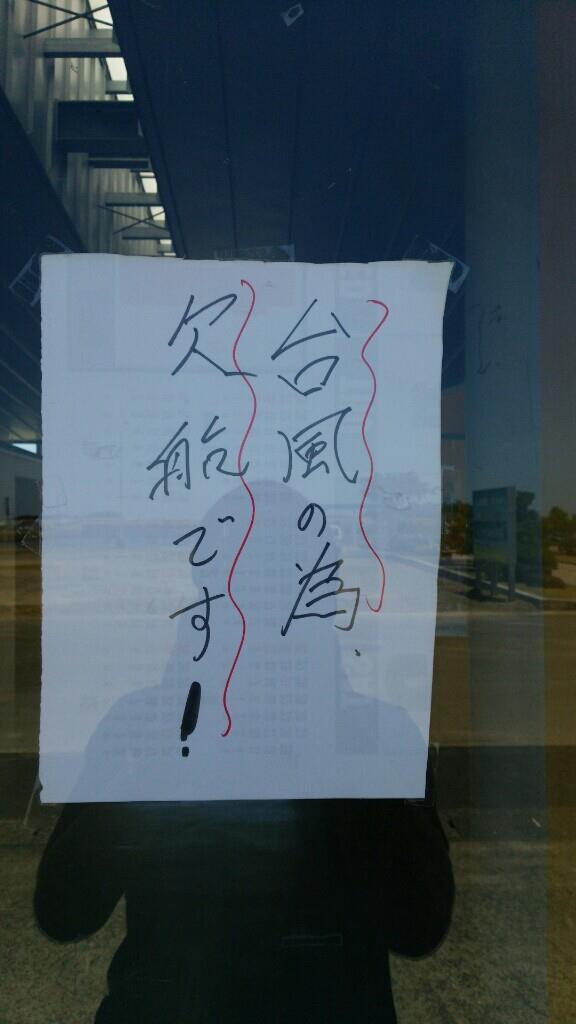 台風の為、
欠船です!